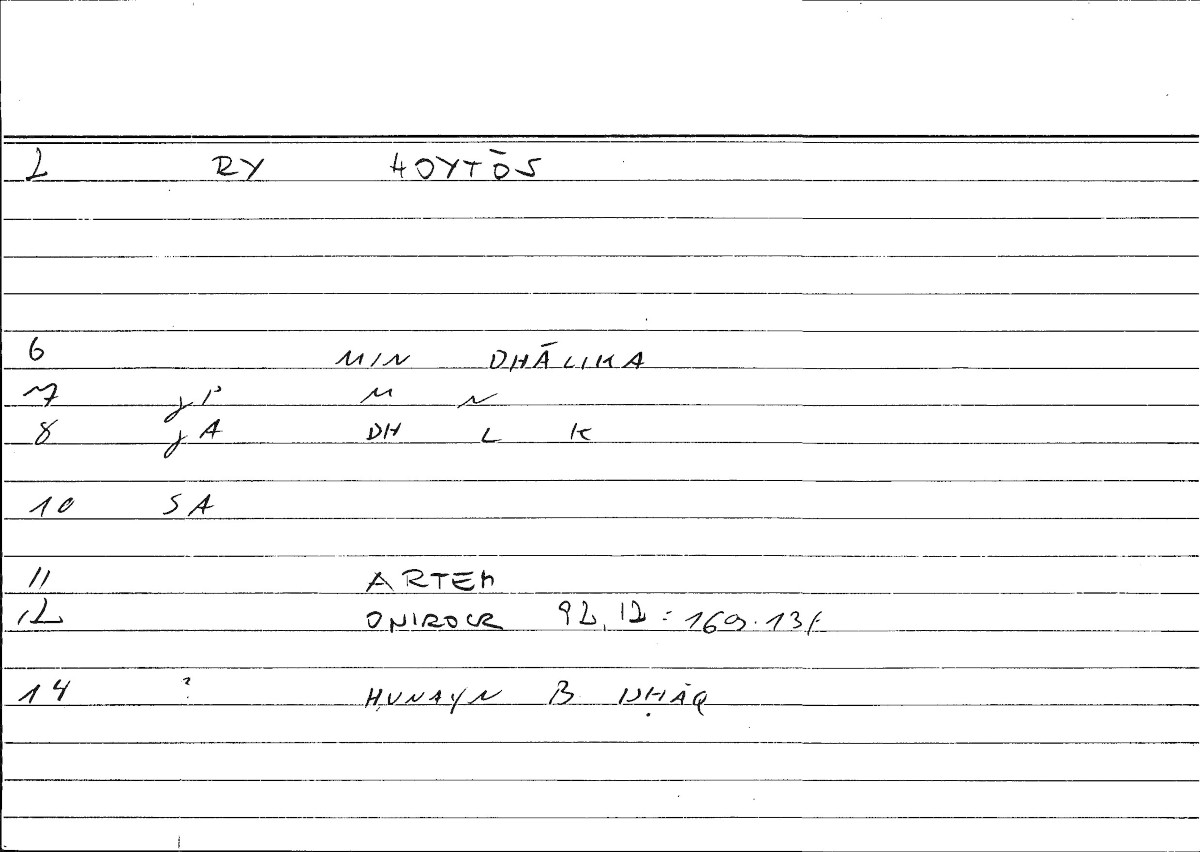 2 RY HOYTŌS
6 MIN DHĀLIKA
7 JP M N
8 JA DH L K
10 SA
11 ARTEM
12 ONIROCR 92,12 = 169.13f
14 ? ḤUNAYN B